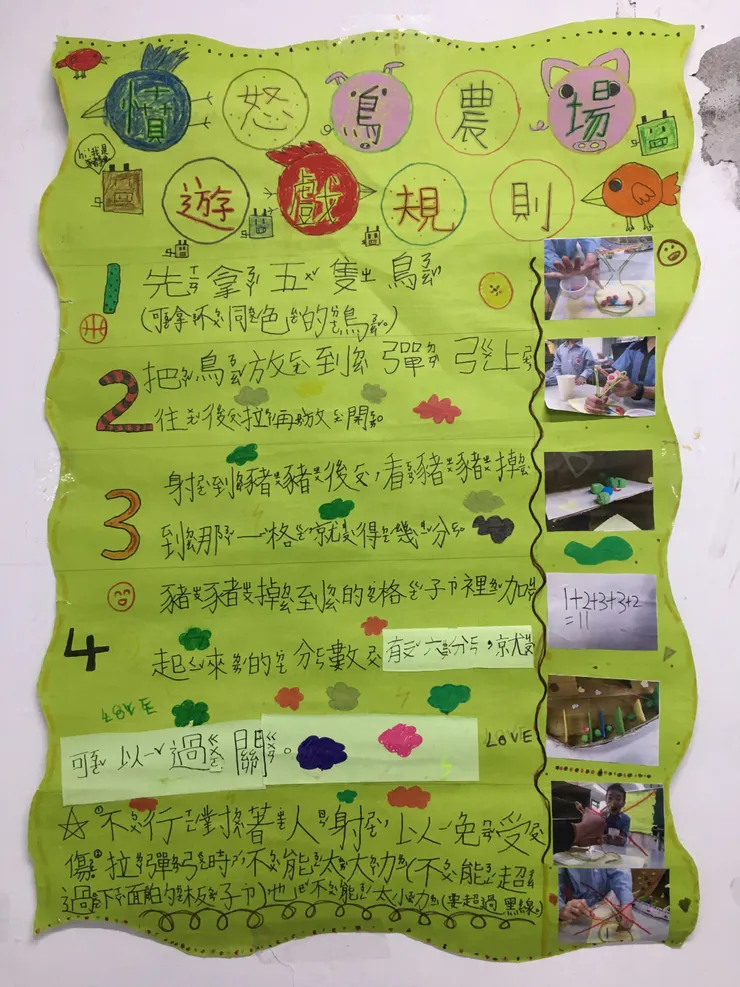 憤怒鳥農場
hi!我是
遊戲規則
1 先拿五隻鳥
(可拿不同色的鳥。)
2 把鳥放到彈弓上
往後拉再放開
3 射到豬豬後,看豬豬掉
到那一格就得幾分
1+2+3+3+2
=11
4 豬豬掉到的格子裡加
起來的分數有六分,就
可以過關。
LOVE
☆①不行對著人射,以免受
傷②拉彈弓時不能太大力(不能超
過下面的板子)也不能太小力(要超過黑線。)